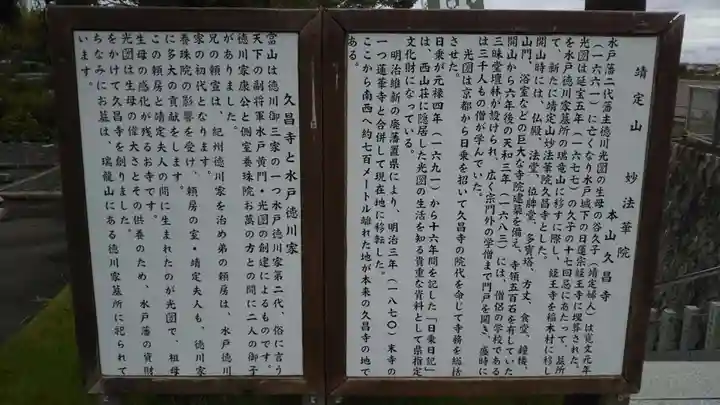 靖定山 妙法華院
本山久昌寺
水戸藩二代藩主徳川光圀の生母の谷久子(靖定夫人)は寛文元年
(一六六一)に亡くなり水戸城下の日蓮宗経王寺に埋葬された。
光圀は延宝五年(一六七七)の久子の十七回忌にあたって、墓所
を水戸徳川家墓所の瑞竜山に移すに際し、経王寺を稲木村に移し
て、新たに靖定山妙法華院久昌寺とした。
開山時には、仏殿、法堂、位牌堂、多宝塔、方丈、食堂、鐘楼、
山門、浴室などの巨大な寺院建築を備え、寺領五百石を有していた
開山から六年後の天和三年(一六八三)には、僧侶の学校である
三昧堂壇林が設けられ、広く宗門外の学僧まで門戸を開き、盛時に
は三千人もの僧が学んでいた。
光圀は京都から日乗を招いて久昌寺の院代を命じて寺務を総括
させた。
日乗が元禄四年(一六九一)から十六年間を記した「日乗日記」
は、西山荘に隠居した光圀の生活を知る貴重な資料として県指定
文化財になっている。
明治維新の廃藩置県により、明治三年(一八七〇)末寺の
一つ蓮華寺と合併して現在地に移転した。
ここから南西へ約七百メートル離れた地が本来の久昌寺の地で
ある。
久昌寺と水戸徳川家
當山は徳川御三家の一つ水戸徳川家第二代、俗に言う
天下の副将軍水戸黄門・光圀の創建によるものです。
徳川家康公と側室養珠院お萬の方との間に二人の御子
がありました。
兄の頼宣は、紀州徳川家を治め弟の頼房は、水戸徳川
家の初代となります。
養珠院の影響を受け、頼房の室・靖定夫人も、徳川家
に多大の貢献をします。
この頼房と靖定夫人の間に生まれたのが光圀で、祖母
生母の感化が残るお寺です。
光圀は生母の偉大さとその供養のため、水戸藩の資財
をかけて久昌寺を創りました。
ちなみにお墓は、瑞龍山にある徳川家墓所に祀られて